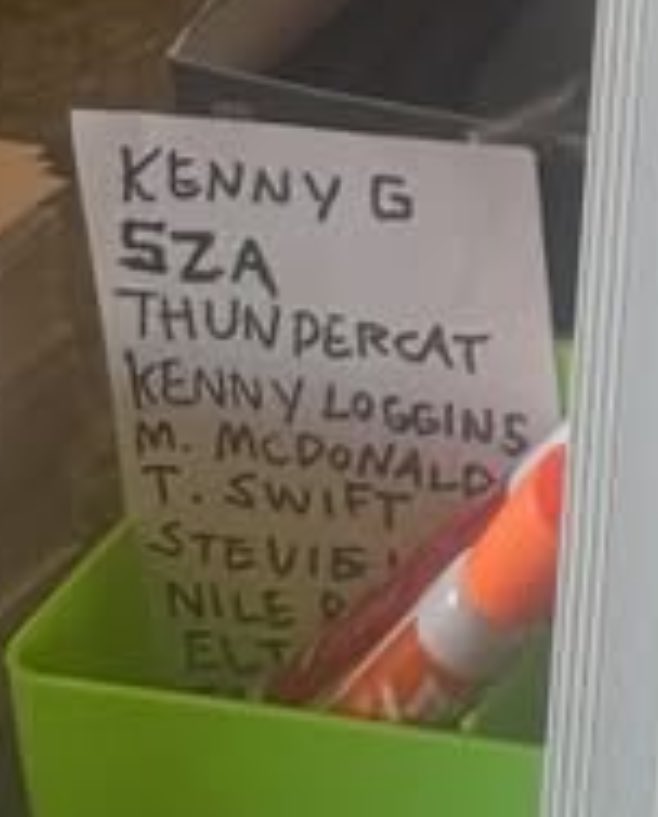 KENNY G
SZA
THUNDERCAT
KENNY LOGGINS
M. MCDONALD
T. SWIFT
STEVIE
NILE
ELT